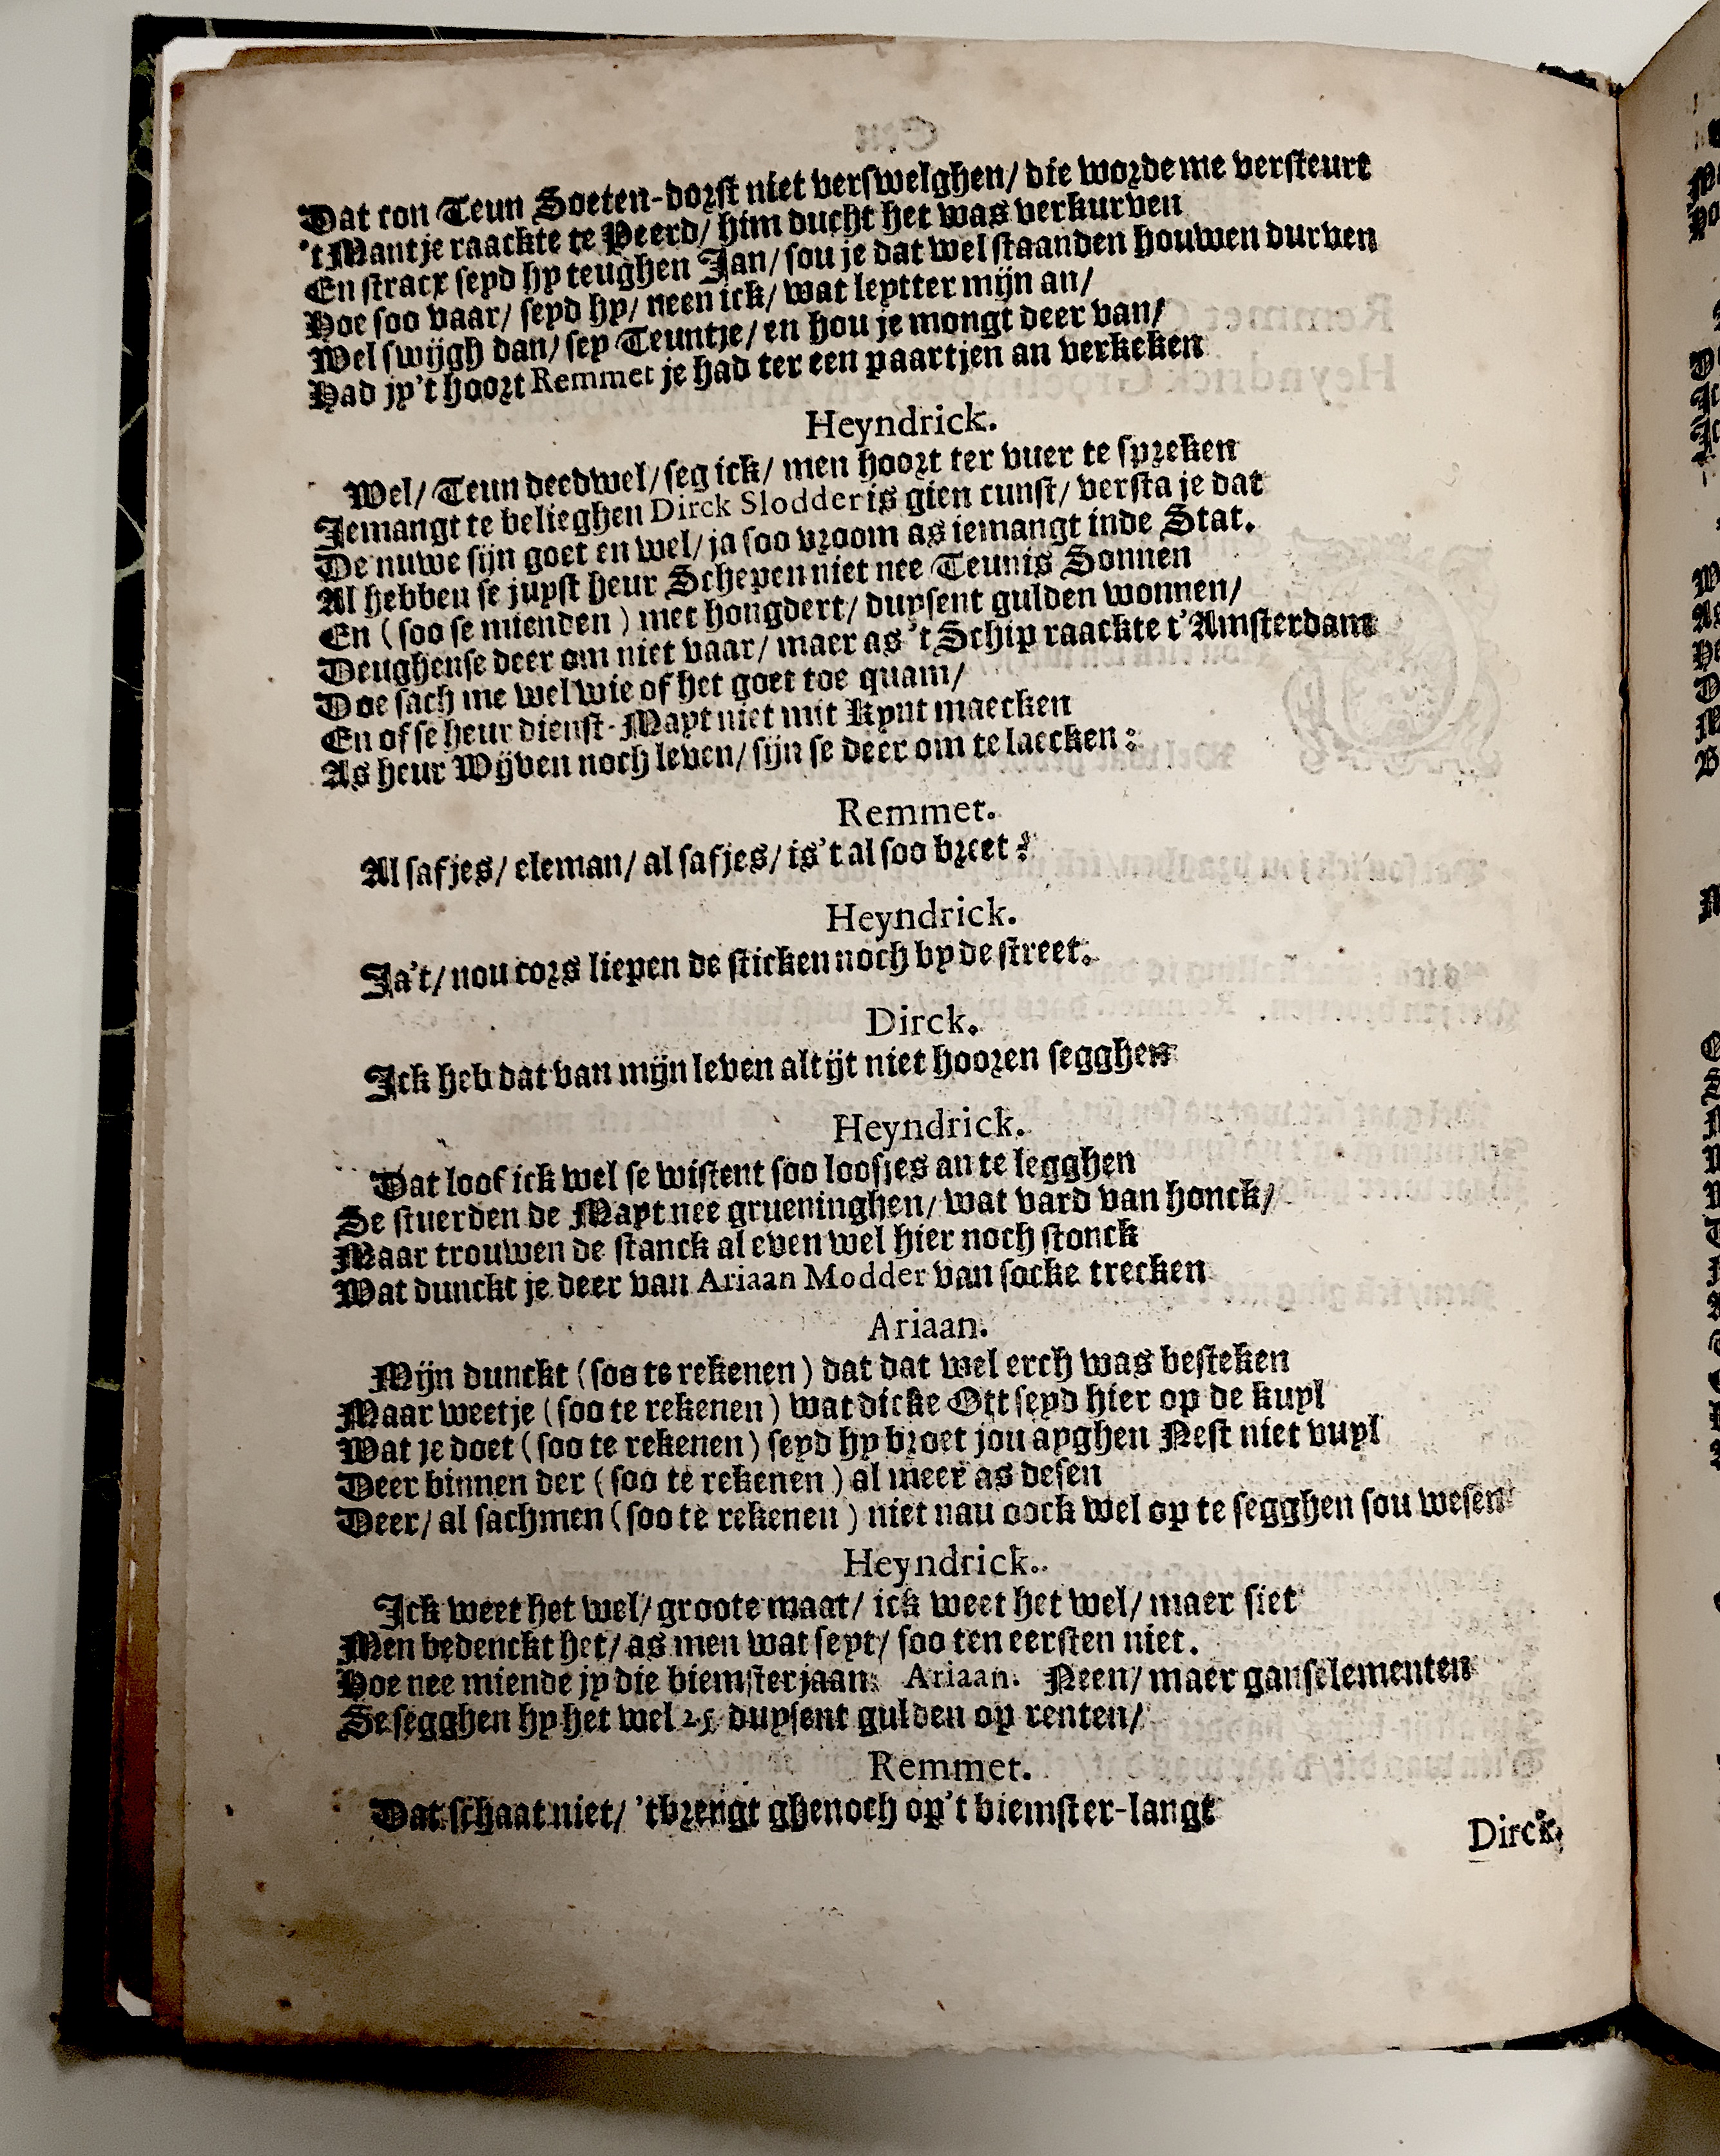 Dat con Teun Soeten-dorst niet verswelghen/ die worde me versteurt
't Mantje raackte te Peerd/ him ducht het was verkurven
En stracx seyd hy teughen Jan/ sou je dat wel staanden houwen durven
Hoe soo vaar/ seyd hy/ neen ick/ wat leytter mijn an/
Wel swijgh dan/ sey Teuntje/ en hou je mongt deer van/
Had jy't hoort Remmet je had ter een paartjen an verkeken
Heyndrick.
Wel/ Teun deed wel/ seg ick/ men hoort ter vuer te spreken
Jemangt te belieghen Dirck Slodder is gien cunst/ versta je dat
De nuwe sijn goet en wel/ ja soo vroom as iemangt inde Stat.
Al hebben se juyst heur Schepen niet nee Teunis Sonnen
En (soo se mienden) met hongdert/ duysent gulden wonnen/
Deughense deer om niet vaar/ maer as 't Schip raackte t'Amsterdam
Doe sach me wel wie of het goet toe quam/
En of se heur dienst-Mayt niet mit Kynt maecken
As heur Wijven noch leven/ sijn se deer om te laecken?
Remmet.
Al safjes/ eleman/ al safjes/ is't al soo breet?
Heyndrick.
Ja't/ nou cors liepen de sticken noch by de street.
Dirck.
Ick heb dat van mijn leven altijt niet hooren segghen
Heyndrick.
Dat loof ick wel se wistent soo loosjes an te legghen
Se stuerden de Mayt nee grueninghen/ wat vard van honck/
Maar trouwen de stanck al even wel hier noch stonck
Wat dunckt je deer van Ariaan Modder van socke trecken
Ariaan.
Mijn dunckt (soo te rekenen) dat dat wel erch was besteken
Maar weetje (soo te rekenen) wat dicke Ott seyd hier op de kuyl
Wat je doet (soo te rekenen) seyd hy broet jou ayghen Nest niet vuyl
Deer binnen der (soo te rekenen) al meer as desen
Deer/ al sachmen (soo te rekenen) niet nau oock wel op te segghen sou wesen
Heyndrick.
Ick weet het wel/ groote maat/ ick weet het wel/ maer siet
Men bedenckt het/ as men wat seyt/ soo ten eersten niet.
Hoe nee miende jy die biemster jaan: Ariaan. Neen/ maer ganselementen
Se segghen hy het wel 25 duysent gulden op renten/
Remmet.
Dat schaat niet/ 't brengt ghenoch op't biemster-langt
Dirck,